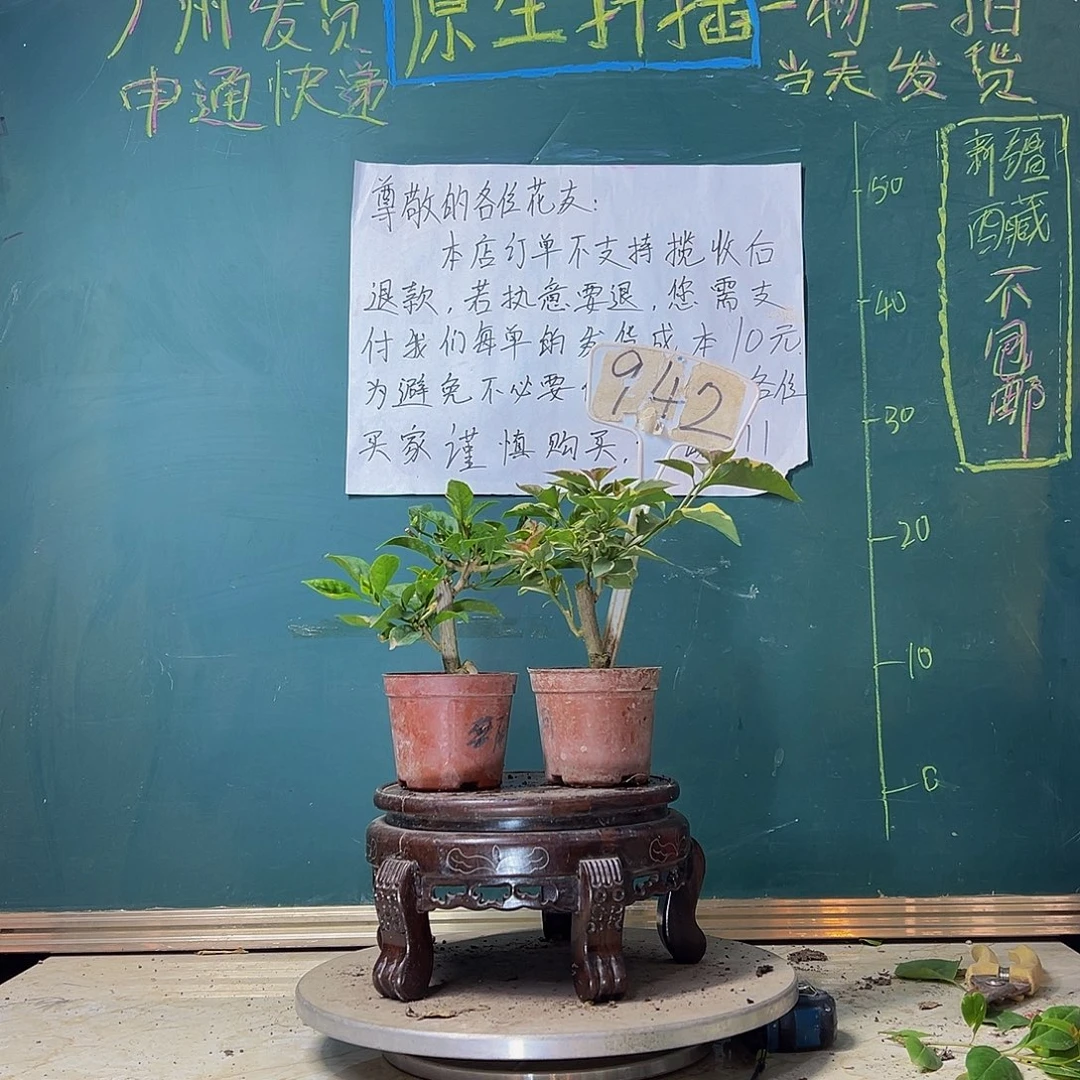 广州发货 原生扦插 一物一拍
申通快递
当天发货
尊敬的各位花友:
本店订单不支持揽收后
退款,若执意要退,您需支
付我们每单的发货成本10元
为避免不必要 各位
买家谨慎购买,
942
50
40
30
20
10
0
新疆
西藏
不
包
邮